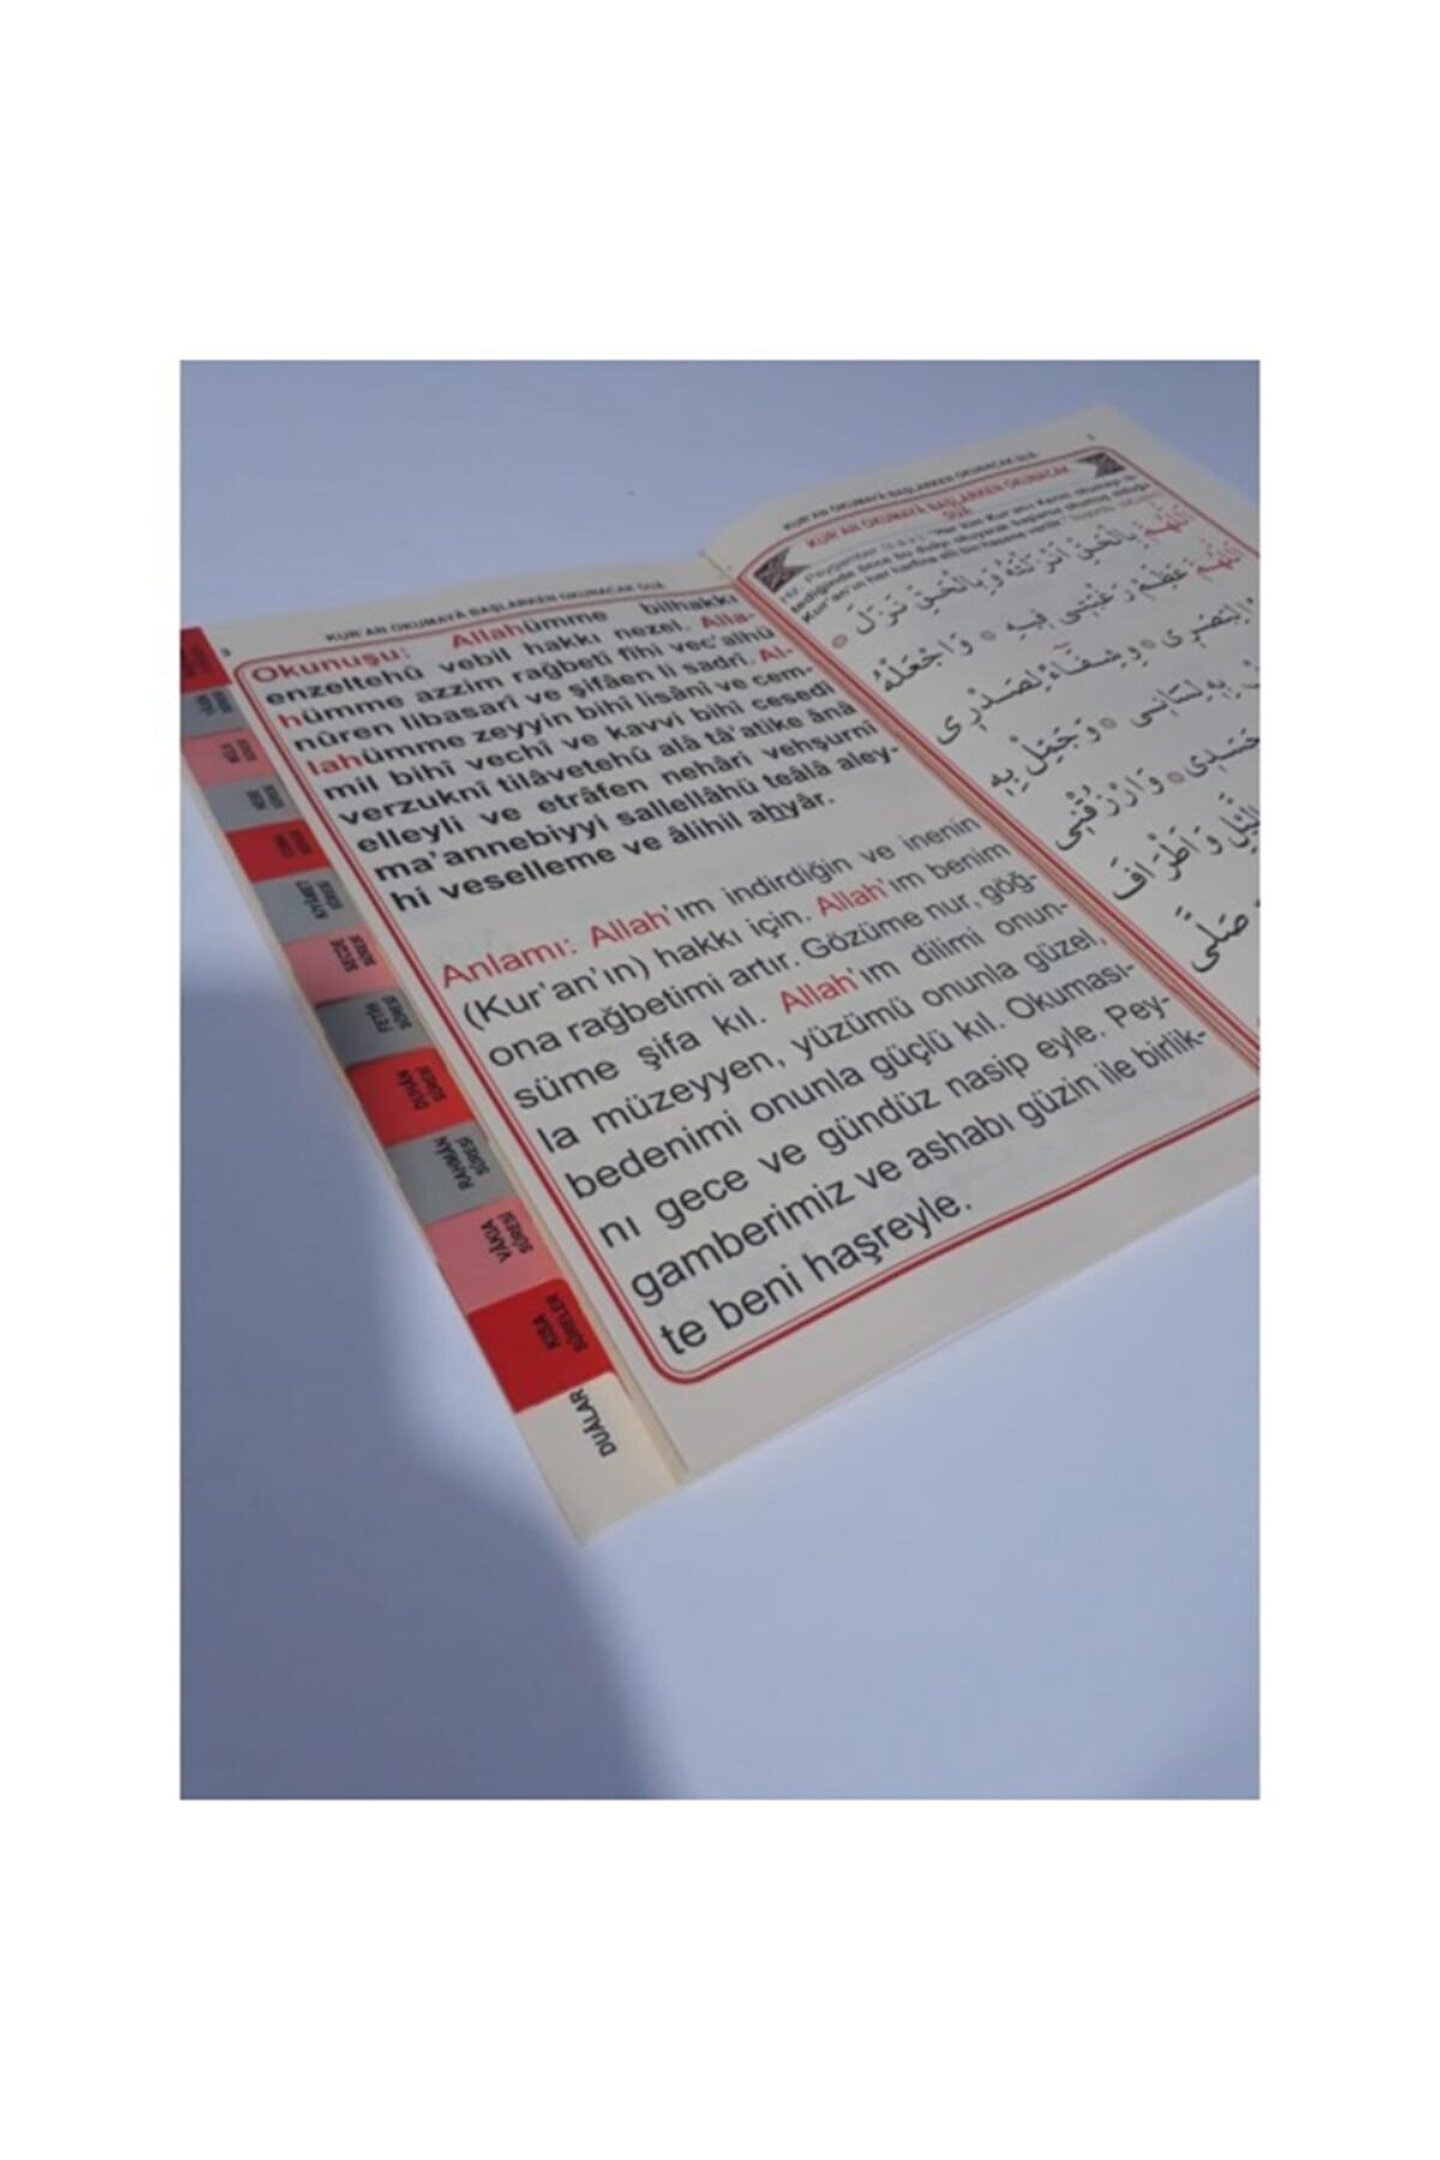 3
KUR'AN OKUMAYA BAŞLARKEN OKUNACAK DUÂ
Okunuşu: Allahümme bilhakkı
enzeltehû vebil hakkı nezel. Alla-
hümme azzim rağbetî fîhi vec'alhü
nûren libasarî ve şifâen li sadrî. Al-
lahümme zeyyin bihî lisâni ve cem-
mil bihî vechî ve kavvi bihî cesedî
verzuknî tilâvetehû alâ tâ'atike ânâ
elleyli ve etrâfen nehâri vehşurnî
ma'annebiyyi sallellâhü teâlâ aley-
hi veselleme ve âlihil ahyâr.
Anlamı: Allah'ım indirdiğin ve inenin
(Kur'an'ın) hakkı için. Allah'ım benim
ona rağbetimi artır. Gözüme nur, göğ-
süme şifa kıl. Allah'ım dilimi onun-
la müzeyyen, yüzümü onunla güzel,
bedenimi onunla güçlü kıl. Okuması-
nı gece ve gündüz nasip eyle. Pey-
gamberimiz ve ashabı güzin ile birlik-
te beni haşreyle.
KIYÂMET
SÛRESİ
SECDE
SÛRESİ
FETİH
SÛRESİ
DUHÂN
SÛRESİ
RAHMÂN
SÛRESİ
VÂKIA
SÛRESİ
KISA
SÛRELER
DUÂLAR
KUR'AN OKUMAYA BAŞLARKEN OKUNACAK DUÂ
KUR'AN OKUMAYA BAŞLARKEN OKUNACAK
DUÂ
اَللّٰهُمَّ بِالْحَقِّ اَنْزَلْتَهُ وَبِالْحَقِّ نَزَلَ
اَللّٰهُمَّ عَظِّمْ رَغْبَتِى فِيهِ وَاجْعَلْهُ
لِبَصَرِى وَشِفَاءً لِصَدْرِى
بِهِ لِسَانِى وَجَمِّلْ بِهِ
جَسَدِى وَارْزُقْنِى
الَّيْلِ وَاَطْرَافَ
صَلَّى